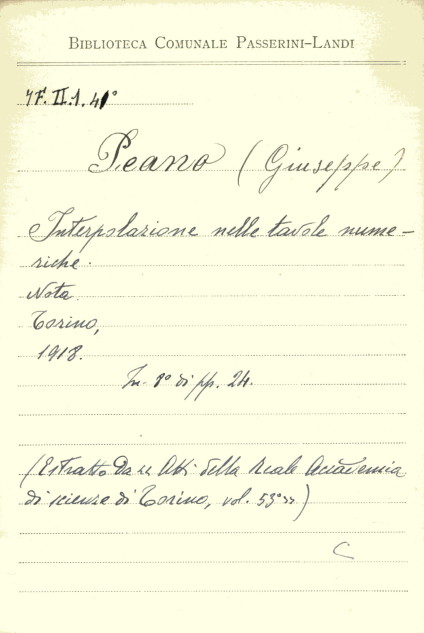 BIBLIOTECA COMUNALE PASSERINI-LANDI
7F.II.1.41°
Peano (Giuseppe)
Interpolazione nelle tavole nume-
riche.
Nota.
Torino,
1918.
In-8° di pp. 24.
(Estratto da << Atti della Reale Accademia
di scienze di Torino, vol. 53° >>)
C